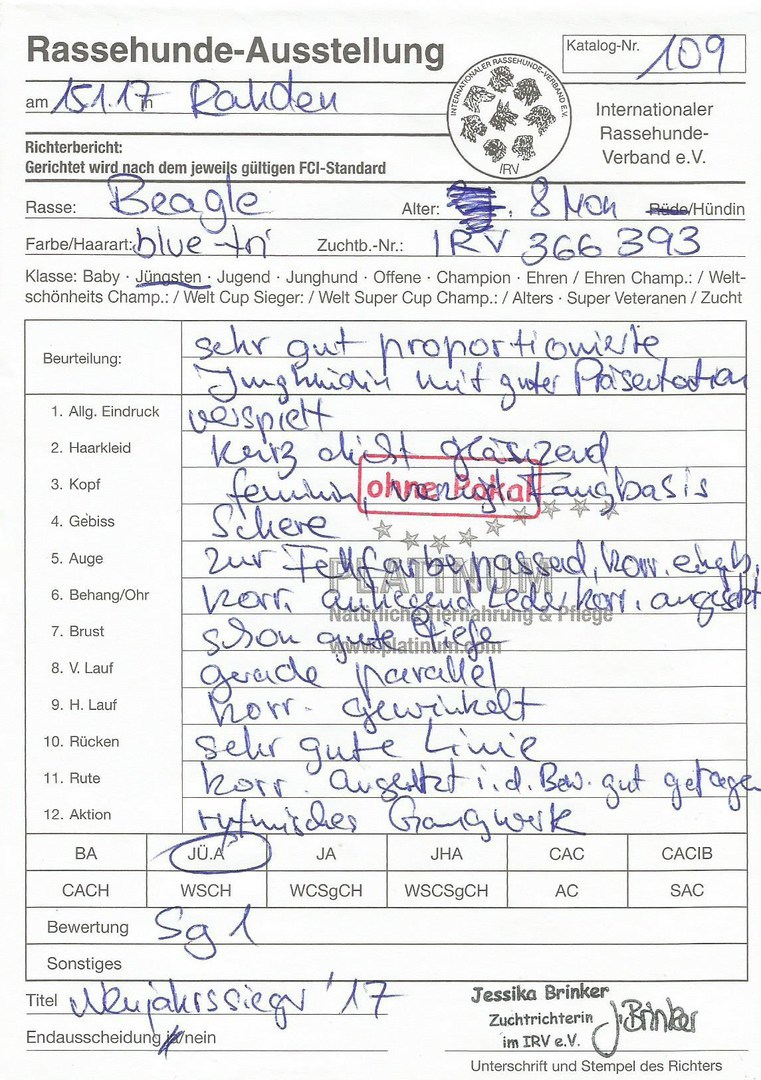 Rassehunde-Ausstellung
Katalog-Nr. 109
am 15.1.17 in Rahden
INTERNATIONALER RASSEHUNDE-VERBAND E.V.
IRV
Internationaler
Rassehunde-
Verband e.V.
Richterbericht:
Gerichtet wird nach dem jeweils gültigen FCI-Standard
Rasse: Beagle Alter: 8 Mon Rüde/Hündin
Farbe/Haarart: blue-tri Zuchtb.-Nr.: IRV 366 393
Klasse: Baby · Jüngsten · Jugend · Junghund · Offene · Champion · Ehren / Ehren Champ.: / Welt-
schönheits Champ.: / Welt Cup Sieger: / Welt Super Cup Champ.: / Alters · Super Veteranen / Zucht
Beurteilung: sehr gut proportionierte
Junghündin mit guter Präsentation
1. Allg. Eindruck verspielt
2. Haarkleid kurz dicht glänzend
3. Kopf feminin, Fangbasis
ohne Pokal
4. Gebiss Schere
5. Auge zur Fellfarbe passend, korr. eingb.
PLATINUM
6. Behang/Ohr korr. anliegend Leder korr. angesetzt
Natürliche Tiernahrung & Pflege
7. Brust schon gute Tiefe
www.platinum.com
8. V. Lauf gerade parallel
9. H. Lauf korr. gewinkelt
10. Rücken sehr gute Linie
11. Rute korr. angesetzt i.d. Bew. gut getragen
12. Aktion rytmisches Gangwerk
BA JÜ.A JA JHA CAC CACIB
CACH WSCH WCSgCH WSCSgCH AC SAC
Bewertung Sg 1
Sonstiges
Titel Neujahrssieger '17
Endausscheidung ja/nein
Jessika Brinker
Zuchtrichterin
im IRV e.V.
J. Brinker
Unterschrift und Stempel des Richters